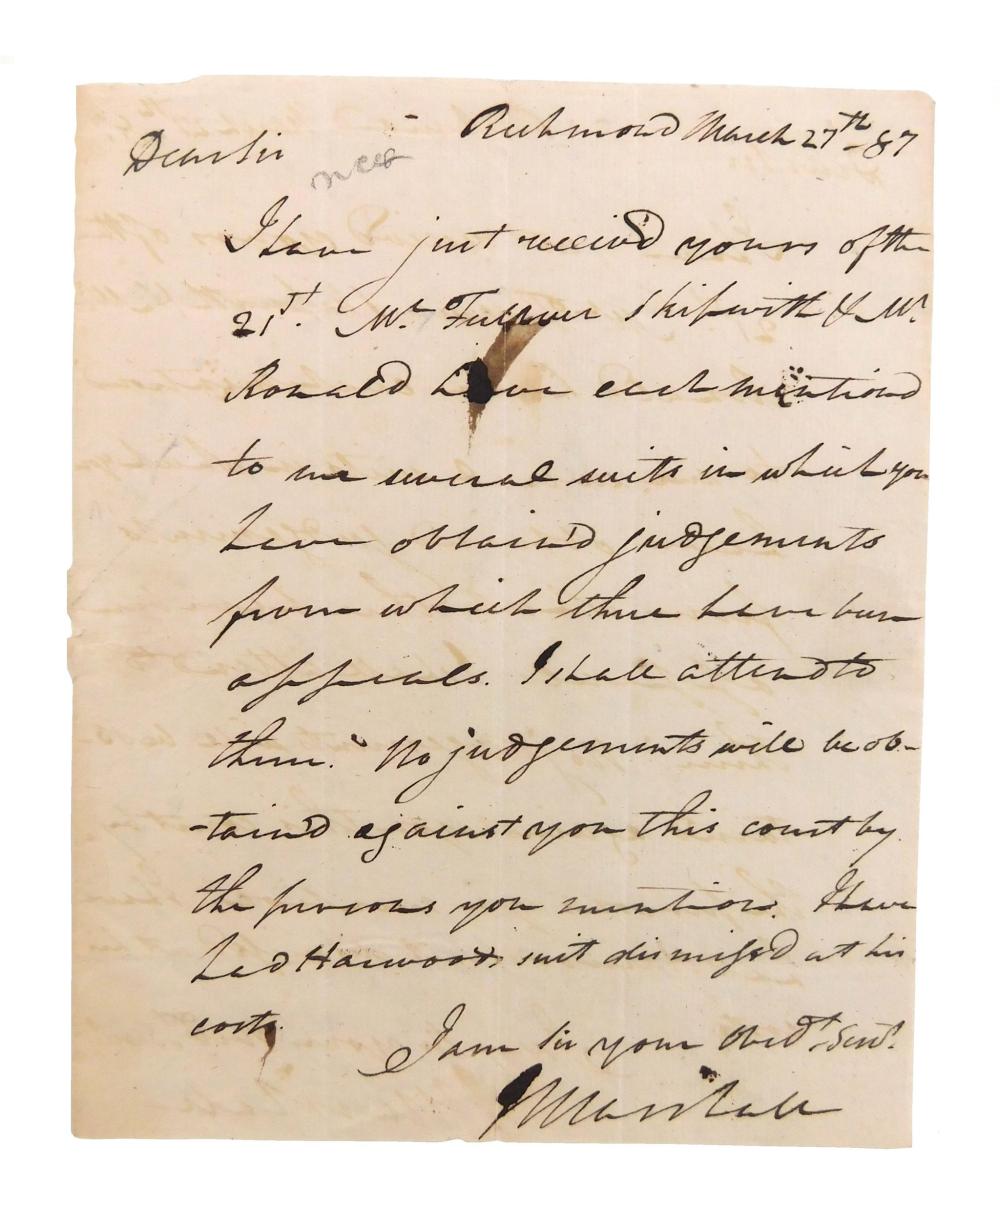 Richmond March 27th - 87
Dear Sir
I have just receiv'd yours of the
21st. Mr. Fulwar Skipwith & Mr.
Ronald have each mention'd
to me several suits in which you
have obtain'd judgements
from which there have been
appeals. I shall attend to
them. No judgements will be ob-
-tain'd against you this court by
the persons you mention. I have
had Harwoods suit dismissd at his
costs.
I am Sir your Obedt. Servt.
J Marshall